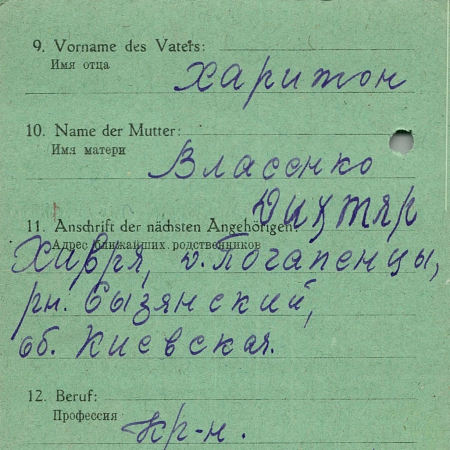 9. Vorname des Vaters:
Имя отца
Харитон
10. Name der Mutter:
Имя матери
Власенко
11. Anschrift der nächsten Angehörigen
Адрес ближайших родственников
Дихтяр
Хивря, д. Погапенцы,
рн. Сызянский,
об. Киевская.
12. Beruf:
Профессия
кр-н.